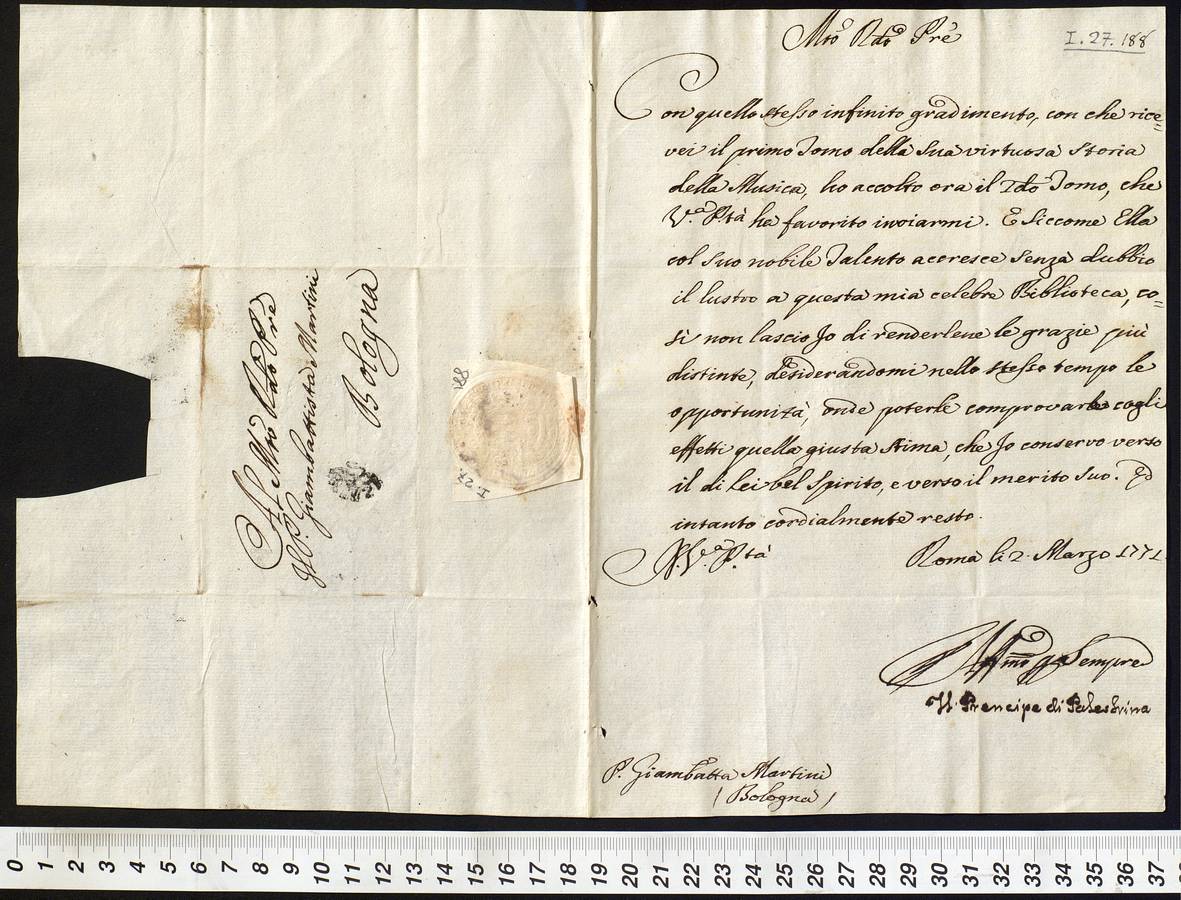 Mtõ Rdõ Prẽ
I.27.188
Con quello stesso infinito gradimento, con che rice=
vei il primo Tomo della Sua virtuosa Storia
della Musica, ho accolto ora il 2do Tomo, che
V.a P.tà ha favorito inviarmi. E siccome Ella
col suo nobile Talento accresce senza dubbio
il lustro a questa mia celebre Biblioteca, co=
sì non lascio Jo di renderlene le grazie più
distinte, desiderandomi nello stesso tempo le
opportunità, onde poterle comprovarle cogli
effetti quella giusta stima, che Jo conservo verso
il di Lei bel Spirito, e verso il merito suo. Ed
intanto cordialmente resto.
D.V.a P.tà
Roma li 2. Marzo 1771.
Affmõ per Sempre
Il Prencipe di Palestrina
P. Giambatta Martini
(Bologna)
Al Mtõ Rdõ Pre
Il P. Giambattista Martini
Bologna
188
I.27.
0 1 2 3 4 5 6 7 8 9 10 11 12 13 14 15 16 17 18 19 20 21 22 23 24 25 26 27 28 29 30 31 32 33 34 35 36 37